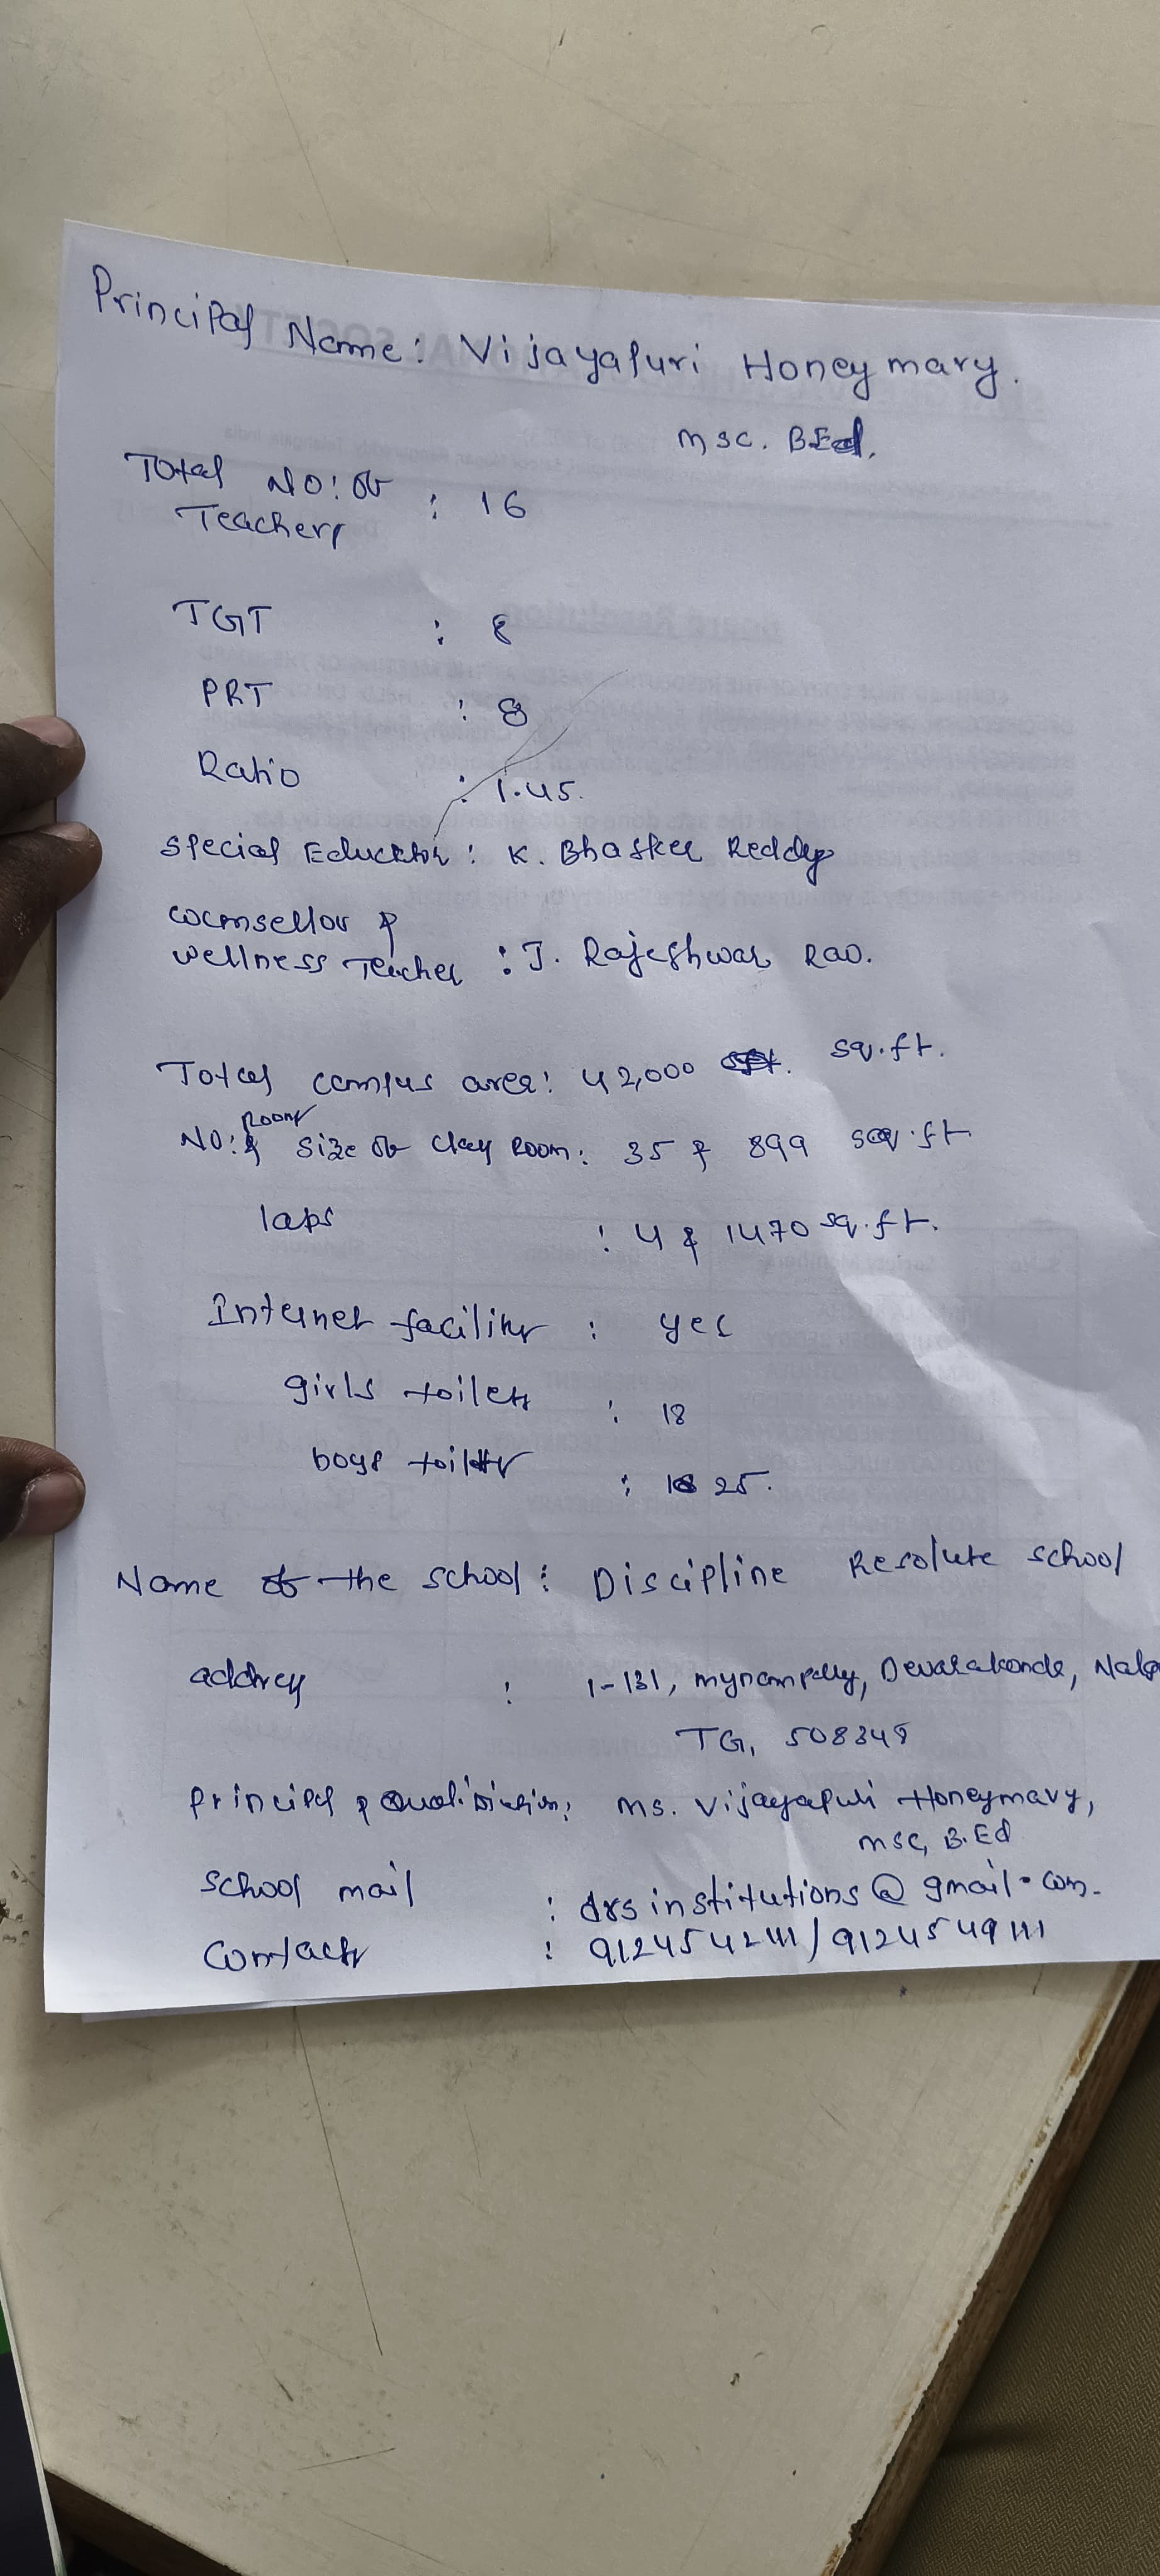 Principal Name: Vijayapuri Honeymary.
Msc. BEd.
Total NO: of : 16
Teachers
TGT : 8
PRT : 8
Ratio : 1.45.
Special Educator : K. Bhasker Reddy
Counsellor &
wellness Teacher : J. Rajeshwar Rao.
Total campus area: 42,000 sq.ft.
Room
NO: & Size of Class Room: 35 & 899 sq.ft
labs : 4 & 1470 sq.ft.
Internet facility : yes
girls toilets : 18
boys toilets : 25.
Name of the school : Discipline Resolute school
address : 1-131, mynampally, Devarakonda, Nalg
TG, 508248
Principal & Qualification: Ms. Vijayapuri Honeymary,
MSC, B.Ed
School mail : drsinstitutions@gmail.com.
Contact :